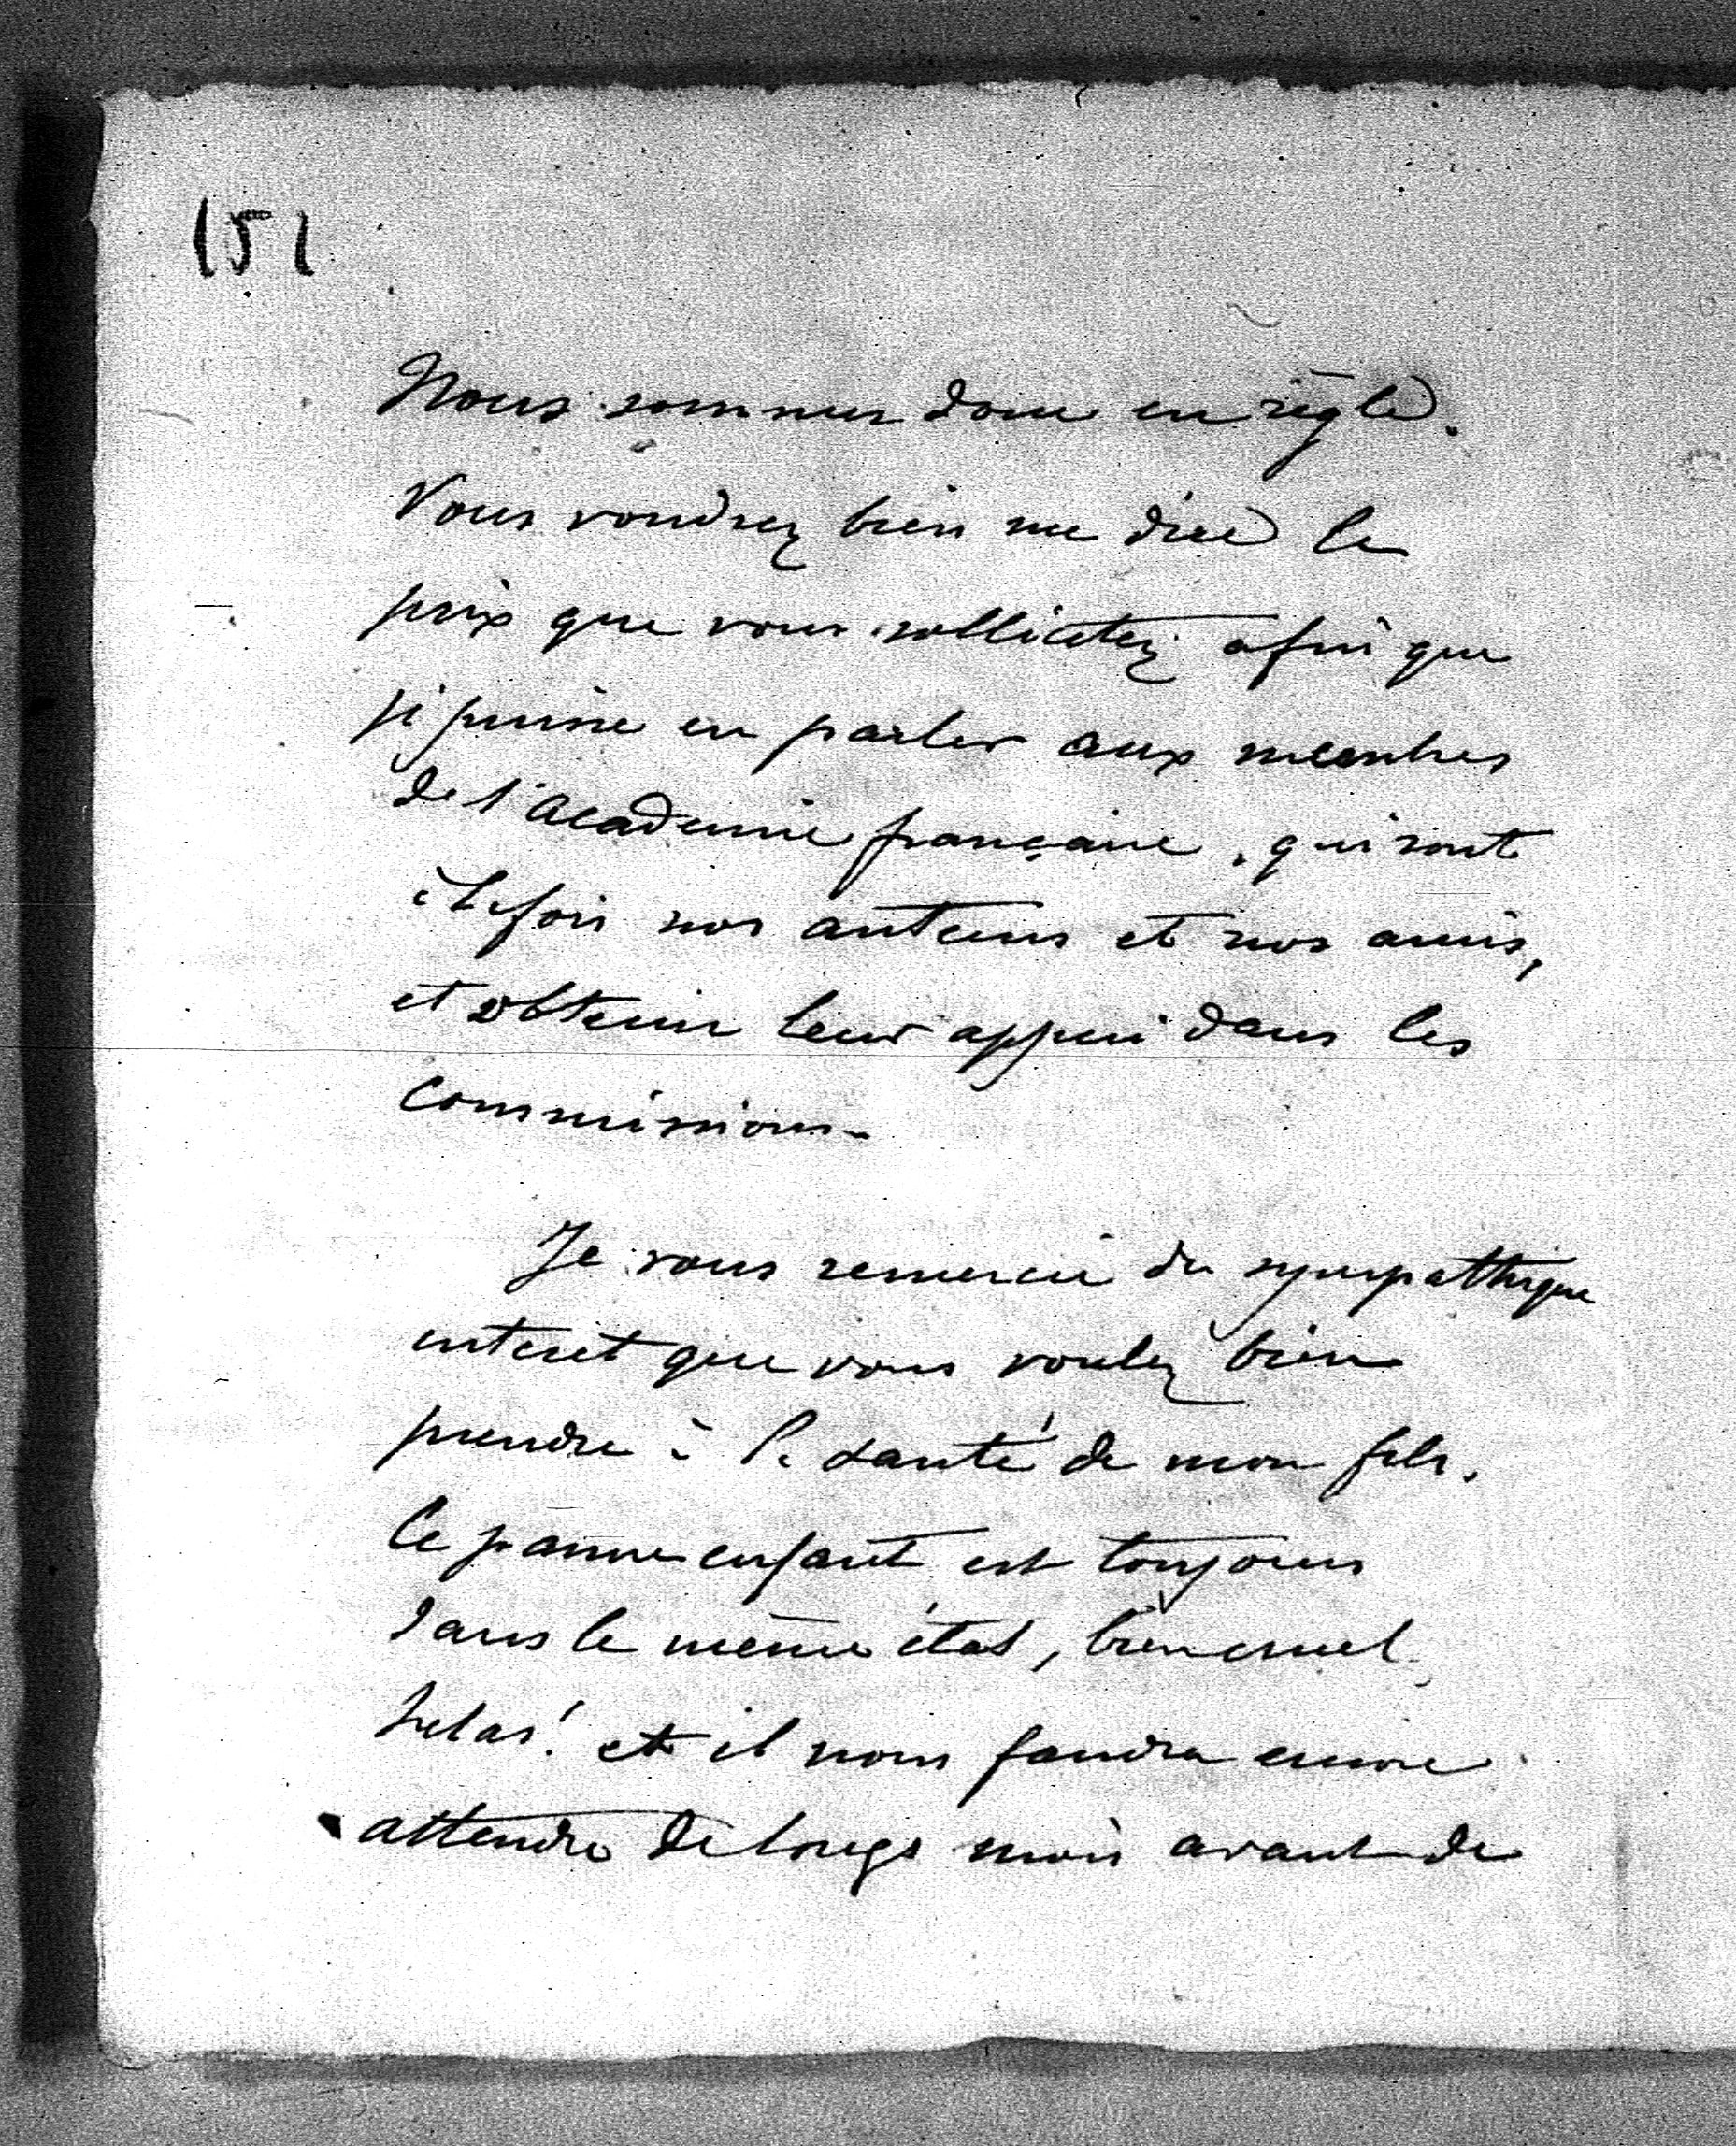 151
Nous sommes donc en règle.
Vous voudrez bien me dire le
prix que vous sollicitez afin que
je puisse en parler aux membres
de l'académie française, qui sont
à la fois nos auteurs et nos amis,
et obtenir leur appui dans les
commissions.
Je vous remercie du sympathique
interet que vous voulez bien
prendre à la santé de mon fils.
Ce pauvre enfant est toujours
dans le même état, bien cruel,
helas! et il nous faudra encore
attendre de longs mois avant de